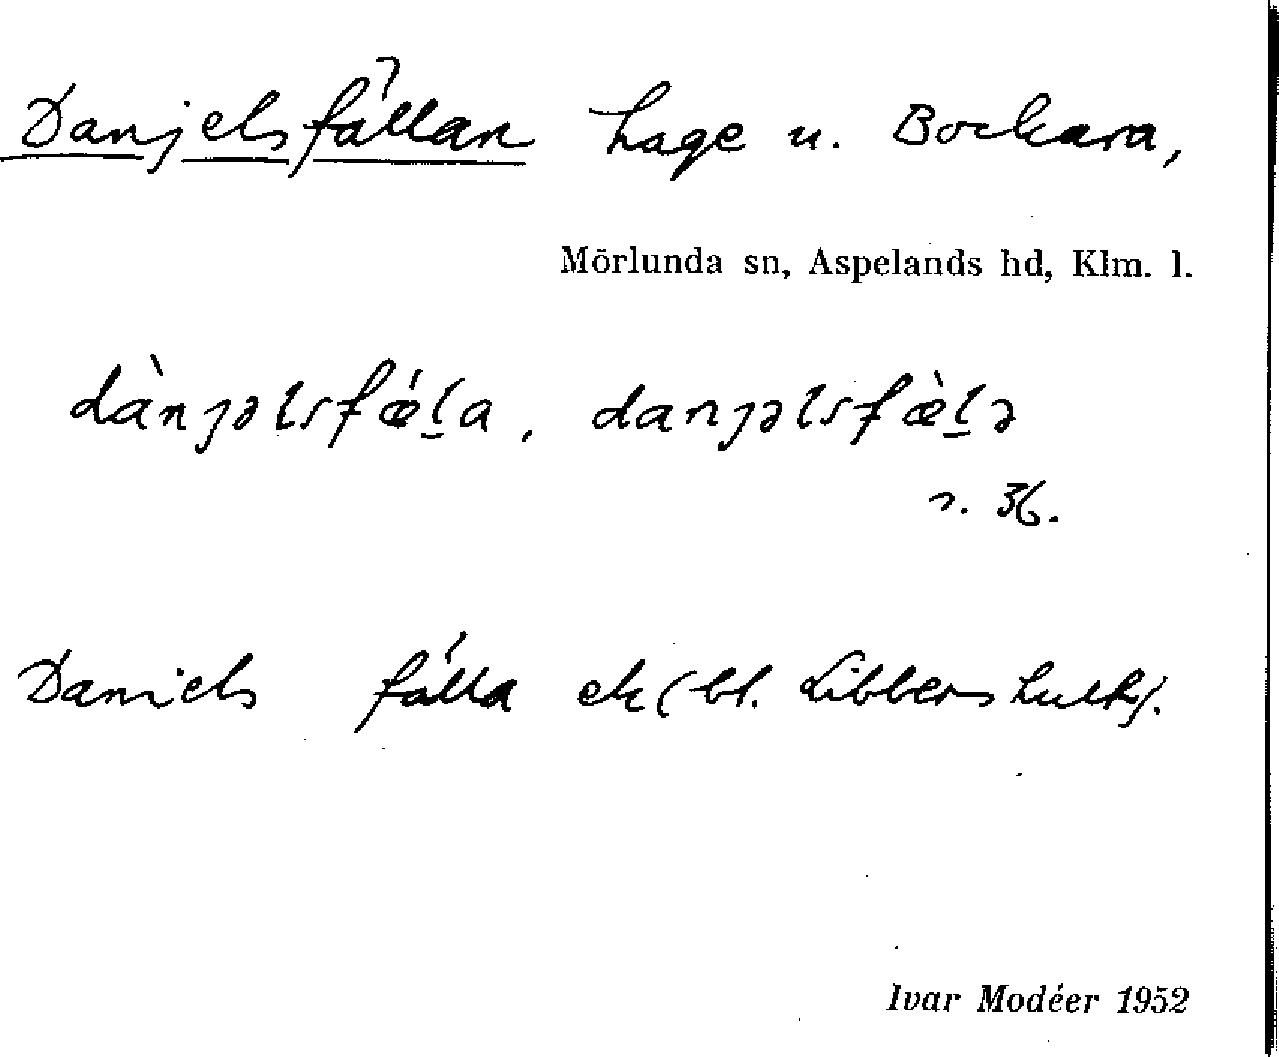 Danjelsfällan hage u. Bockara,
Mörlunda sn, Aspelands hd, Klm. l.
dànȷəlsfǽl̠a, danȷəlsfæ̀l̠ə
s. 36.
Daniels fälla ek (bl. Libbershult).
Ivar Modéer 1952